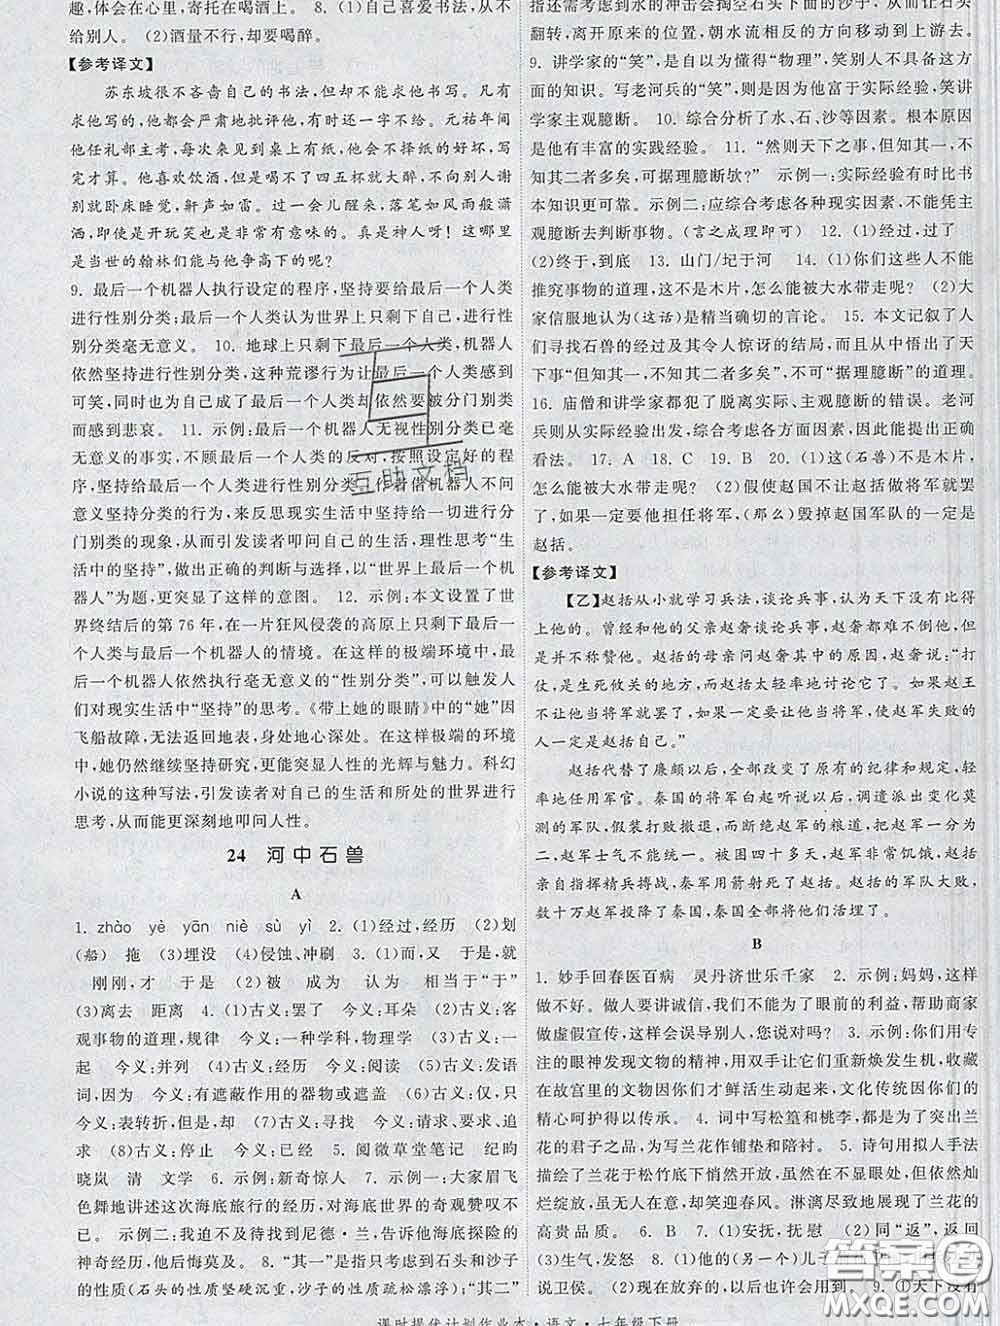 趣,体会在心里,寄托在喝酒上。 8. (1)自己喜爱书法,从不
给别人。 (2)酒量不行,却要喝醉。
【参考译文】
苏东坡很不吝啬自己的书法,但却不能求他书写。凡有
求他写的,他都会严肃地批评他,有时还一字不给。元祐年间
他任礼部主考,每次来到我的案前,他会不择纸的好坏,书写
完才算。他喜欢饮酒,但是喝不了四五杯就大醉,不向别人谢
别就卧床睡觉,鼾声如雷。一会儿醒来,落笔如风雨般潇
洒,即使是开玩笑也是非常有意味的。真是神人啊!这哪里
是当世的翰林们能与他争高下的呢?
9. 最后一个机器人执行设定的程序,坚持要给最后一个人类
进行性别分类;最后一个人类认为世界上只剩下自己,进行性
别分类毫无意义。 10. 地球上只剩下最后一个人类,机器人
依然坚持进行性别分类,这种荒谬行为让最后一个人类感到
可笑,同时也为自己成了最后一个人类却依然要被分门别类
而感到悲哀。 11. 示例:最后一个机器人无视性别分类已毫
无意义的事实,不顾最后一个人类的反对,按照设定好的程
序,坚持对最后一个人类进行性别分类。作者借机器人不问
意义坚持分类的行为,来反思现实生活中坚持给一切进行分
门别类的现象,从而引发读者叩问自己的生活,理性思考“生
活中的坚持”,做出正确的判断与选择,以“世界上最后一个机
器人”为题,更突显了这样的意图。 12. 示例:本文设置了世
界终结后的第 76 年,在一片狂风侵袭的高原上只剩下最后
一个人类与最后一个机器人的情境。在这样的极端环境中,最
后一个机器人依然执行毫无意义的“性别分类”,可以触发人们
对现实生活中“坚持”的思考。《带上她的眼睛》中的“她”因
飞船故障,无法返回地表,身处地心深处。在这样极端的环境
中,她仍然继续坚持研究,更能突显出人性的光辉与魅力。科幻
小说的这种写法,引发读者对自己的生活和所处的世界进行
思考,从而能更深刻地叩问人性。
24 河中石兽
A
1. zhào yè yān niè sù yì 2. (1)经过,经历 (2)划
(船) 拖 (3)埋没 (4)侵蚀、冲刷 3. (1)而,又 于是,就
刚刚,才 于是,就 (2)被 成为 认为 相当于“于”
(3)离去 距离 4. (1)古义:罢了 今义:耳朵 (2)古义:客
观事物的道理,规律 今义:一种学科,物理学 (3)古义:已
经 今义:并且 (4)古义:经历 今义:阅读 (5)古义:发语
词 今义:有遮蔽作用的器物或遮盖 (6)古义:仅仅,只
今义:表转折,但是 (7)古义:寻找 今义:请求、要求、追
求 (8)古义:古代 今义:二十四小时 5. 阅微草堂笔记 纪昀
晓岚 清 文学 6. 示例:新奇惊人 7. 示例一:大家眉飞
色舞地讲述这次海底旅行的经历,对海底世界的奇观赞叹不
已。 示例二:我迫不及待找到尼德·兰,告诉他海底探险的
神奇经历,但他后悔莫及。 8. “其一”是指只考虑到石头和沙子
的性质(石头的性质坚硬沉重,沙子的性质疏松漂浮);“其二”
指还应考虑到水的冲击会掏空石头下面的沙子,让石头
翻转,离开原来的位置,朝水流方向的相反方向移动到上游去。
9. 讲学家的“笑”,是自以为懂得“物理”,笑别人不具备这方
面的知识。写老河兵的“笑”,是因为他富于实际经验,笑讲
学家主观臆断。 10. 综合分析了水、石、沙等因素。根本原因是
他有丰富的实践经验。 11. “然则天下之事,但知其一,不
知其二者多矣,可据理臆断欤?” 示例一:实际经验有时比书
本知识更可靠。示例二:应综合考虑各种现实因素,不能凭主
观臆断去判断事物。(言之成理即可) 12. (1)经过,过了
(2)终于,到底 13. 山门/圮于河 14. (1)你们这些人不能
推究事物的道理,这不是木片,怎么能被大水带走呢? (2)大
家信服地以为(这话)是精当确切的言论。 15. 本文记叙了人
们寻找石兽的经过及其令人惊讶的结局,而从中悟出了天
下事“但知其一,不知其二者多矣”,不可“据理臆断”的道理。
16. 庙僧和讲学家都犯了脱离实际、主观臆断的错误。老河
兵则从实际经验出发,综合考虑各方面因素,因此能得出正确
看法。 17. A 18. C 19. B 20. (1)这(石兽)不是木片,
怎么能被大水带走呢? (2)假使赵国不让赵括做将军就罢
了;如果一定要他担任将军,(那么)毁掉赵国军队的一定是
赵括。
【参考译文】
【乙】赵括从小就学习兵法,谈论兵事,认为天下没有比得
上他的。曾经和他的父亲赵奢谈论兵事,赵奢都不难倒他,但
是并不称赞他。赵括的母亲问赵奢其中的原因,赵奢说:“打
仗,是生死攸关的地方,而赵括太轻率地讨论它了。如果赵王
不让他当将军就罢了,如果一定要让他当将军,使赵军失败的
人一定是赵括自己。”
赵括代替了廉颇以后,全部改变了原有的纪律和规定,轻
率地任用军官。秦国的将军白起听说以后,调遣派出变化莫
测的军队,假装打败撤退,而断绝赵军的粮道,把赵军一分为
二,赵军士气不能统一。被围困四十多天,赵军非常饥饿,赵括
亲自指挥精兵搏斗,秦军用箭射死了赵括。赵括的军队大败,
数十万赵军投降了秦国,秦国全部将他们活埋了。
B
1. 妙手回春医百病 灵丹济世乐千家 2. 示例:妈妈,这样
做不好。做人要讲诚信,我们不能为了眼前的利益,帮助商家
做虚假宣传,这样会误导别人,您说对吗? 3. 示例:你们用专
注的眼神发现文物的精神,用双手让它们重新焕发生机,收藏
在故宫里的文物因你们才鲜活生动起来,文化传统因你们的
精心呵护得以传承。 4. 词中写松篁和桃李,都是为了突出兰
花的君子之品,为写兰花作铺垫和陪衬。 5. 诗句用拟人手法
描写了兰花于松竹底下悄然开放,虽然在不显眼处,但依然灿
烂绽放,虽无人爱惜,却笑迎春风。淋漓尽致地展现了兰花的
高贵品质。 6. B 7. (1)安抚,抚慰 (2)同“返”,返回
(3)生气,发怒 8. (1)他的(另一个)儿子
说卫侯。 (2)现在放弃的,以后也许会用到。 9. ①天下没有
课时提优计划作业本·语文·七年级下册
互助文档
答案圈
MXQE.COM